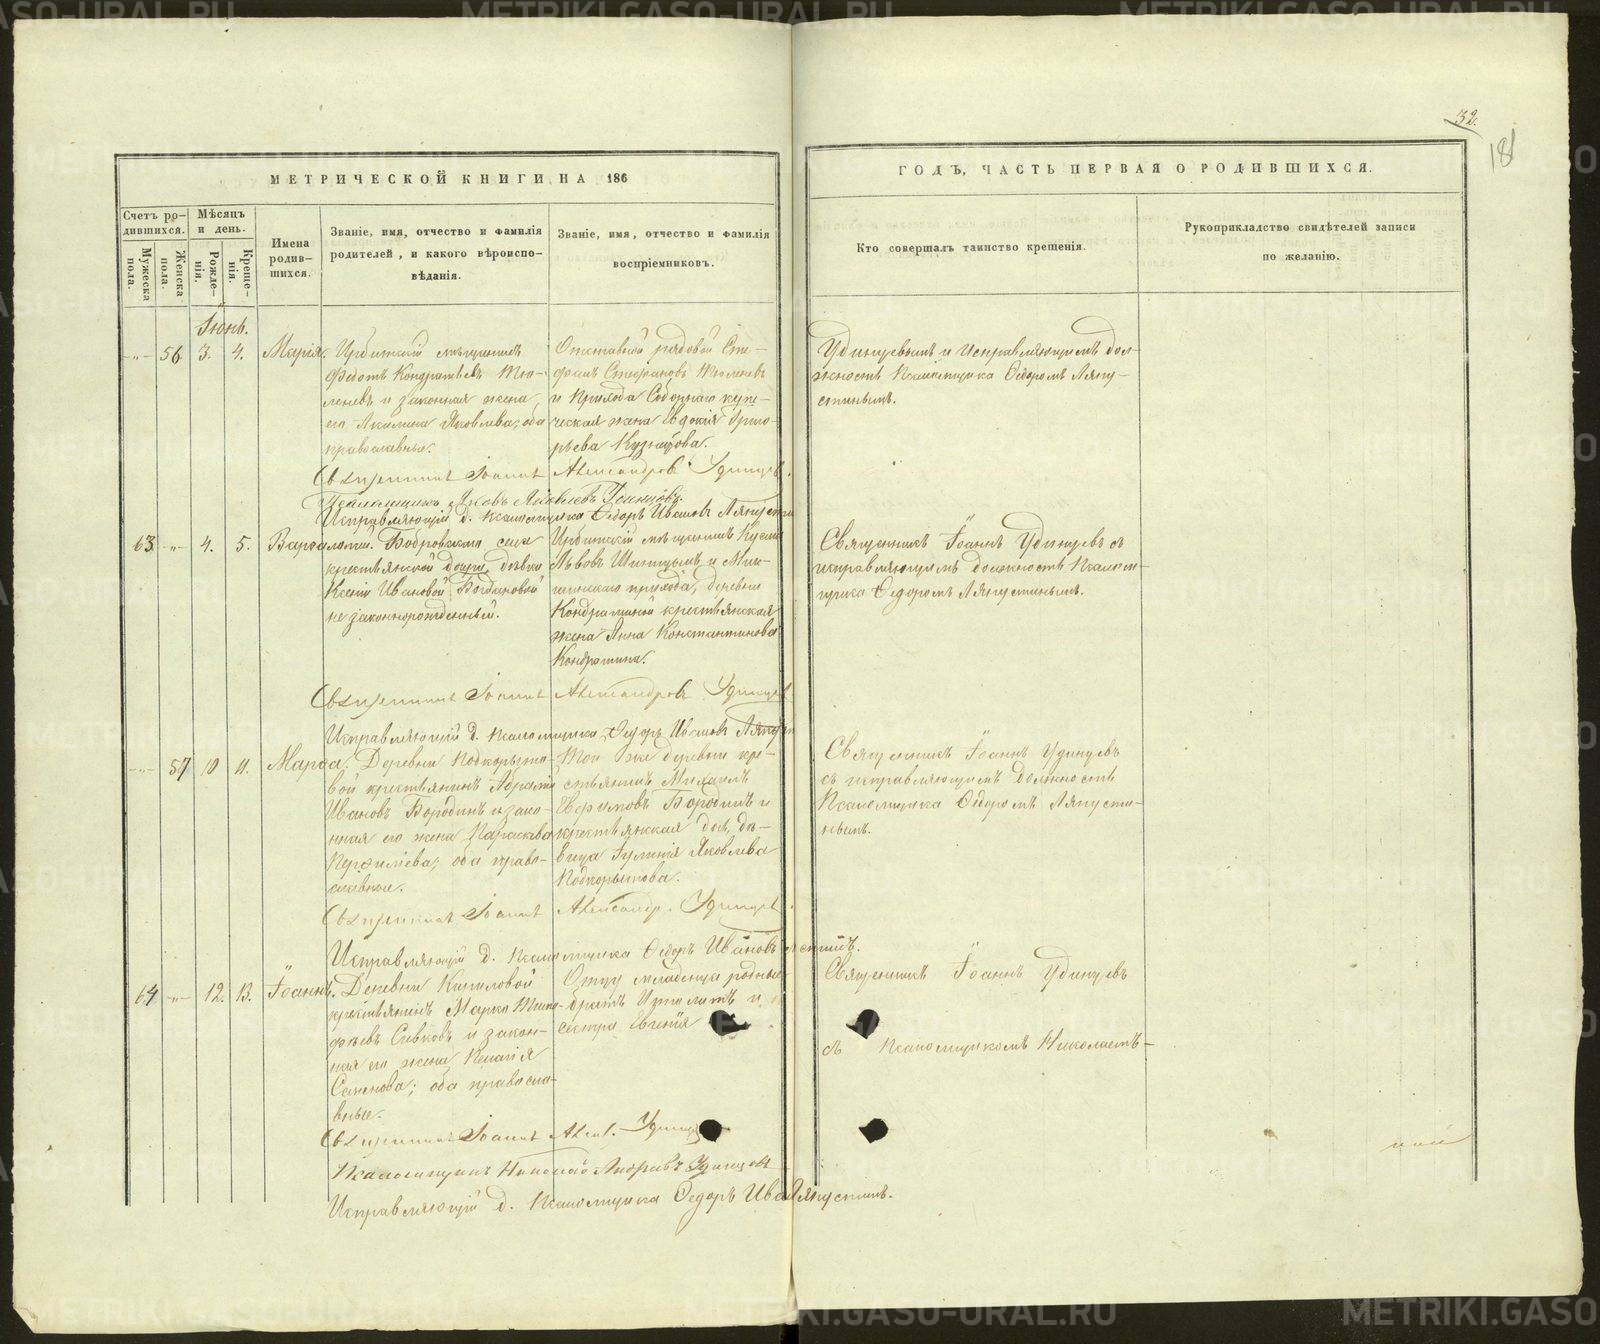 32.
18
МЕТРИЧЕСКОЙ КНИГИ НА 186
ГОДЪ, ЧАСТЬ ПЕРВАЯ О РОДИВШИХСЯ.
Счетъ ро-
дившихся.
Мужеска пола.
Женска пола.
Мѣсяцъ
и день.
Рожде-
нія.
Креще-
нія.
Имена
родив-
шихся.
Званіе, имя, отчество и фамилія
родителей, и какого вѣроиспо-
вѣданія.
Званіе, имя, отчество и фамилія
воспріемниковъ.
Кто совершалъ таинство крещенія.
Рукоприкладство свидѣтелей записи
по желанію.
Іюнь.
-"- 56 3. 4. Марія.
Ирбитскій мѣщанинъ
Федотъ Кондратьевъ Тю-
леневъ и законная жена
его Акилина Яковлева; оба
православные.
Отставной рядовой Сте-
фанъ Стефановъ Тюленевъ
и Прихода Соборнаго купе-
ческая жена Евдокія Григо-
рьева Кузнецова.
Удинцевымъ и исправляющимъ дол-
жность Псаломщика Ѳедоромъ Ляпу-
стинымъ.
Священникъ Іоаннъ Александровъ Удинцевъ.
Псаломщикъ Яковъ
Исправляющій д. псаломщика Ѳедоръ Ивановъ Ляпустинъ
63 -"- 4. 5. Варѳаломей.
Бобровскаго села
крестьянской дочери, дѣвки
Ксеніи Ивановой Богдановой
незаконнорожденный.
Ирбитскій мѣщанинъ Кузма
Львовъ Шипицынъ и
прихода, деревни
Кондратиной крестьянская
жена Анна Константинова
Кондратина.
Священникъ Іоаннъ Удинцевъ съ
исправляющимъ должность псалом-
щика Ѳедоромъ Ляпустинымъ.
Священникъ Іоаннъ Александровъ Удинцевъ
Исправляющій д. псаломщика Ѳедоръ Ивановъ Ляпустин
-"- 57 10 11. Марѳа.
Деревни Подкорыто-
вой крестьянинъ Абрамъ
Ивановъ Бородинъ и зако-
нная его жена Параскева
Перфильева; оба право-
славные.
Той же деревни кре-
стьянинъ Михаилъ
Евфимовъ Бородинъ и
крестьянская доч., дѣ-
вица Іулинія Яковлева
Подкорытова.
Священникъ Іоаннъ Удинцевъ
съ исправляющимъ должность
Псаломщика Ѳедоромъ Ляпусти-
нымъ.
Священникъ Іоаннъ Александр. Удинцевъ.
Исправляющій д. псаломщика Ѳедоръ Ивановъ
64 -"- 12. 13. Іоаннъ.
Деревни Кириловой
крестьянинъ Марко Тимо-
фѣевъ Сивковъ и закон-
ная его жена Пелагія
Семенова; оба правосла-
вные.
Отцу младенца родные
братъ Иполитъ и
сестра Евгенія
Священникъ Іоаннъ Удинцевъ
съ псаломщикомъ Николаемъ
Священникъ Іоаннъ Алекс. Удинц
Псаломщикъ Николай Удинцовъ
Исправляющій д. псаломщика Ѳедоръ Ива Ляпустинъ.